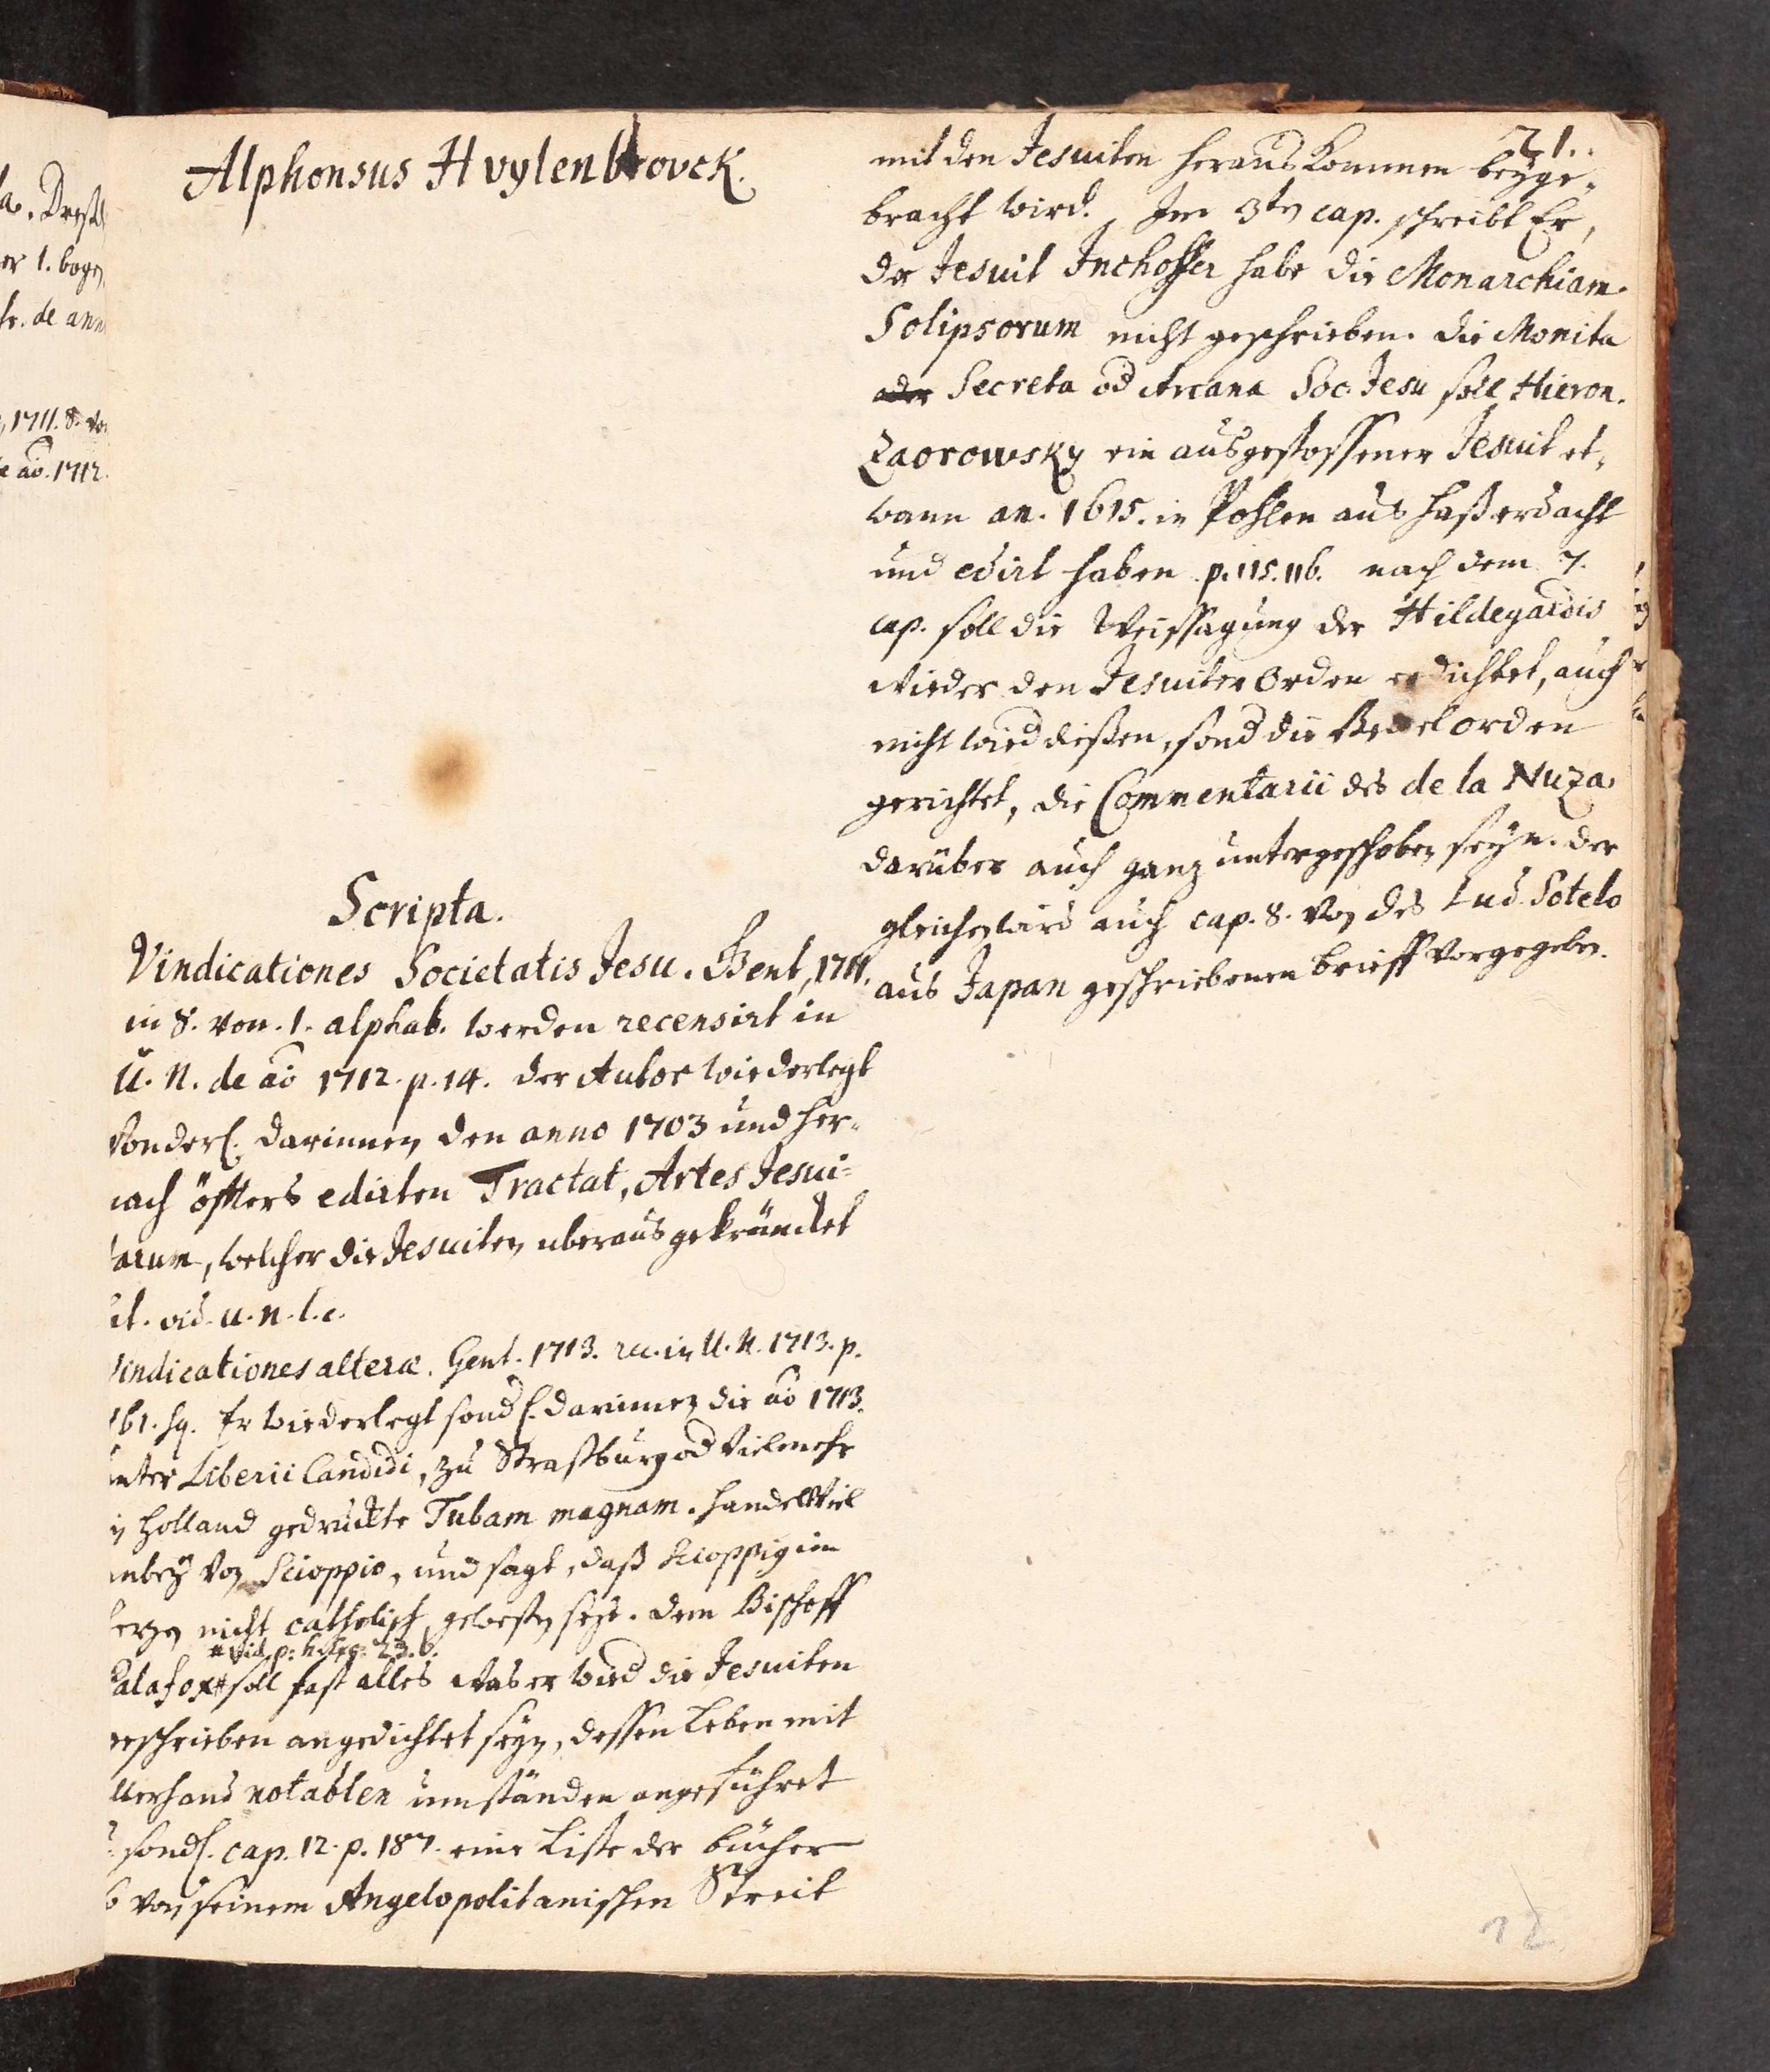 Alphonsus Hvylenbrovck.
Scripta.
Vindicationes Societatis Jesu. Gent, 1711.
in 8. von. 1. alphab. werden recensirt in
U. N. de ao 1712. p. 14. der Autor wiederlegt
sonderl. darinnen den anno 1703 und her-
nach öffters edirten Tractat, Artes Jesui-
tarum, welcher die Jesuiten uberaus gekräncket
vid. u. n. l. c.
Vindicationes alteræ. Gent. 1713. rec. in U. N. 1713. p.
161. sq. Er wiederlegt sondl. darinnen die ao 1713.
unter Liberii Candidi, zu Straßburg od vielmehr
in Holland gedruckte Tubam magnam. handelt viel
anbey von Scioppio, und sagt, daß Scioppig im
hertzen nicht catholisch gewesen seye. dem Bischoff
# vid. p. 23. b.
Palafox # soll fast alles was er wied die Jesuiten
geschrieben angedichtet seyn, dessen Leben mit
allerhand notablen umständen angeführet
sondl. cap. 12. p. 187. eine Liste der bücher
von seinem Angelopolitanischen Streit
21.
mit den Jesuiten heraus kommen beyge-
bracht wird. Im 3ten cap. schreibt Er,
der Jesuit Inchoffer habe die Monarchiam
Solipsorum nicht geschrieben. die Monita
oder Secreta od Arcana Soc. Jesu soll Hieron.
Zaorowsky ein ausgestossener Jesuit et-
wann an. 1615. in Pohlen aus haß erdacht
und edirt haben p. 115. 116. nach dem 7.
cap. soll die Weissagung der Hildegardis
wieder den Jesuiter Orden erdichtet, auch
nicht wied diesen, sond die Bettelorden
gerichtet, die Commentarii des de la Nuza
darüber auch ganz untergeschoben seyn. der
gleichen wird auch cap. 8. von des Lud. Sotelo
aus Japan geschriebenen brieff vorgegeben.
12
a. Dreßd
er 1. bogen
de ann
1711. 8. von
ao. 1712.